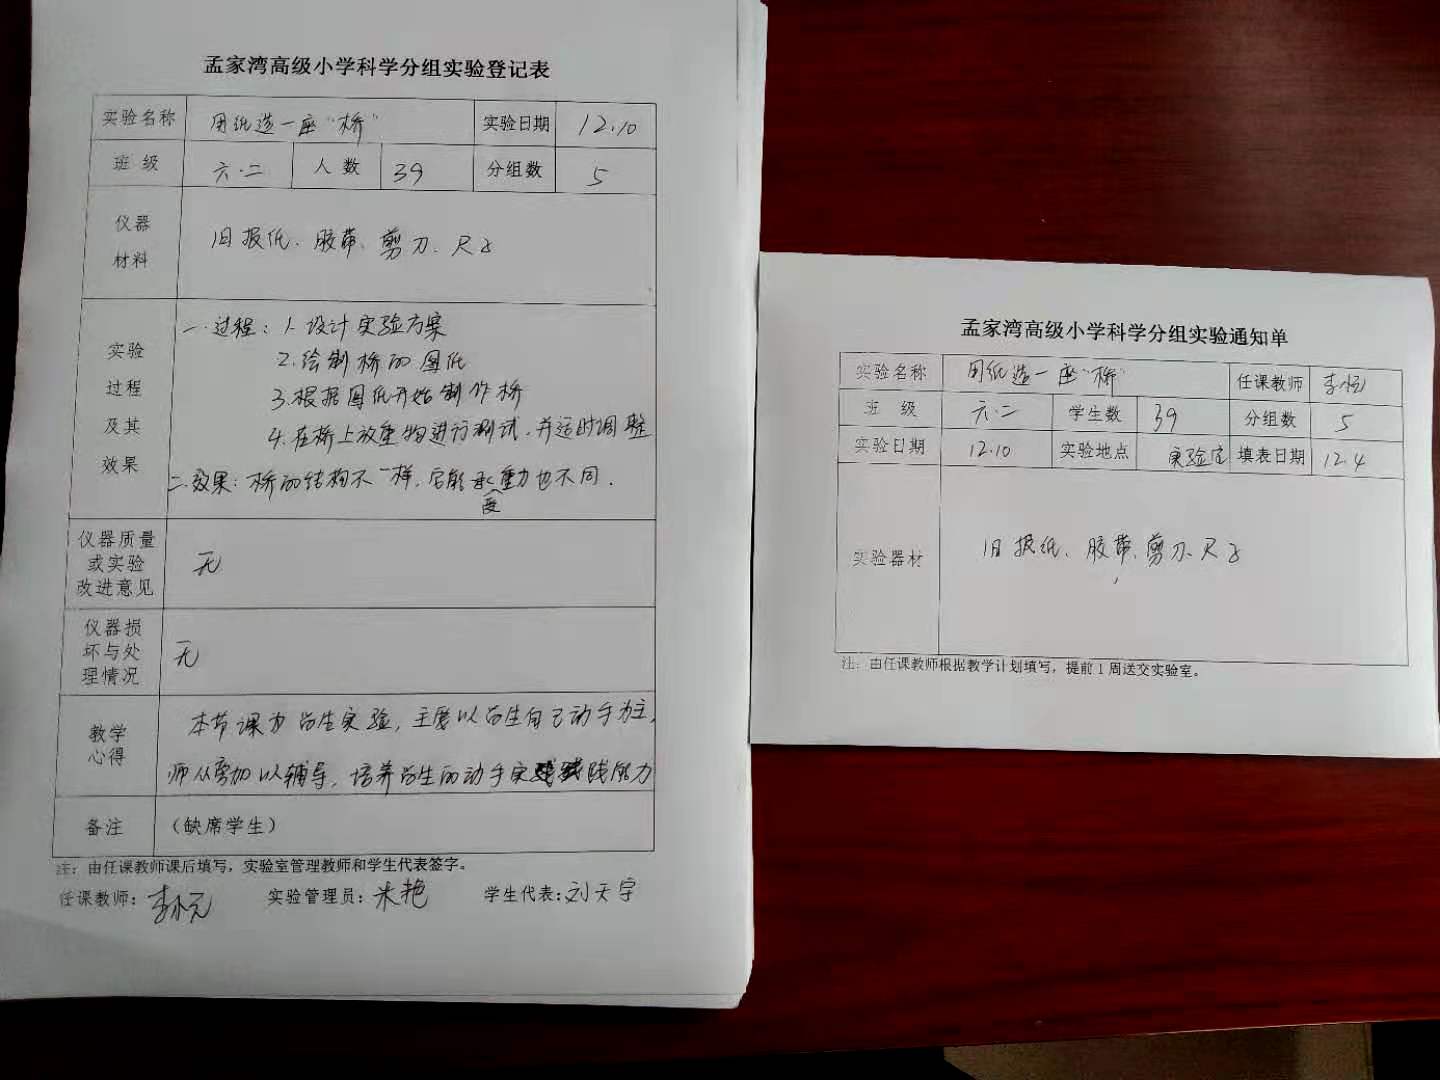 孟家湾高级小学科学分组实验登记表
实验名称 用纸造一座“桥” 实验日期 12.10
班 级 六.二 人 数 39 分组数 5
仪器
材料
旧报纸、胶带、剪刀、尺子
实验
过程
及其
效果
一.过程:1.设计实验方案
2.绘制桥的图纸
3.根据图纸开始制作桥
4.在桥上放重物进行测试.并适时调整
二.效果:桥的结构不一样,它能承受重力也不同.
仪器质量
或实验
改进意见
无
仪器损
坏与处
理情况
无
教学
心得
本节课为学生实验,主要以学生自己动手为主,
师从旁加以辅导,培养学生的动手实践能力
备注 (缺席学生)
注:由任课教师课后填写,实验室管理教师和学生代表签字。
任课教师: 实验管理员:朱艳 学生代表:刘天宇
孟家湾高级小学科学分组实验通知单
实验名称 用纸造一座“桥” 任课教师
班 级 六.二 学生数 39 分组数 5
实验日期 12.10 实验地点 实验室 填表日期 12.4
实验器材 旧报纸、胶带、剪刀、尺子
注:由任课教师根据教学计划填写,提前1周送交实验室。